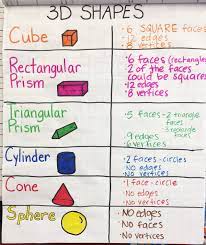 3D SHAPES
Cube
• 6 SQUARE faces
• 12 edges
• 8 vertices
Rectangular
Prism
• 6 faces (rectangle)
• 2 of the faces
could be squares
• 12 edges
• 8 vertices
Triangular
Prism
• 5 faces - 2 triangle
faces
3 rectangle
faces
9 edges
6 vertices
Cylinder
• 2 faces - circle
NO edges
NO vertices
Cone
• 1 face - circle
NO edges
NO vertices
Sphere
• NO edges
• NO faces
• NO vertices